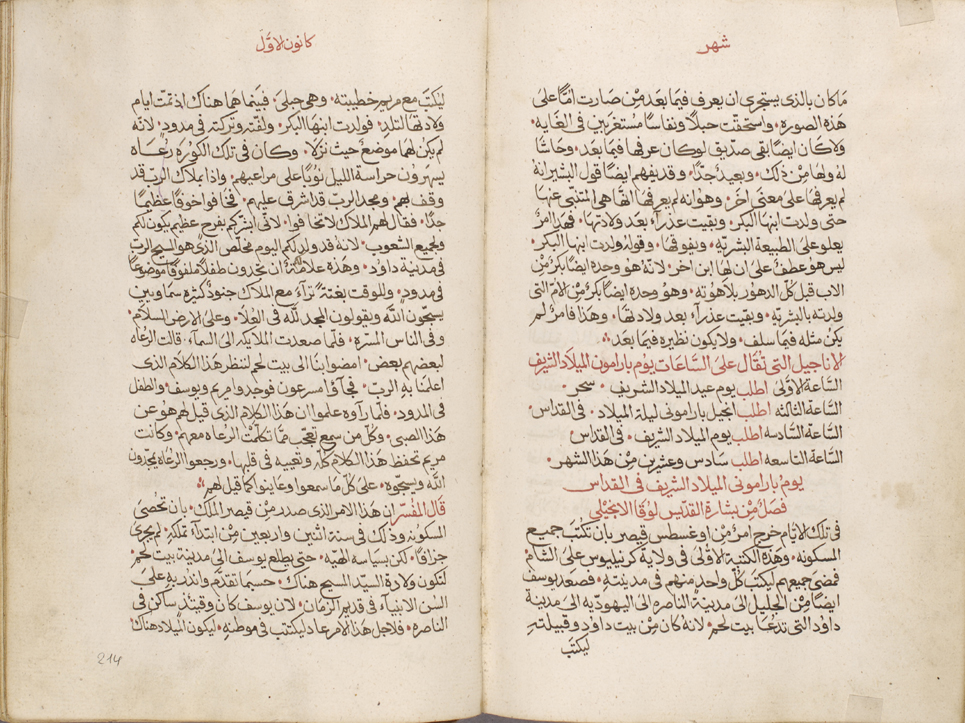 شهر
ما كان بالذى يستجرى ان يعرف فيما بعد مَن صارت امًّا على
هذه الصوره. واستحقّت حبلًا ونفاسًا مستغربَين فى الغايه.
ولا كان ايضًا بقى صدّيق لو كان عرفها فيما بعد. وحاشا
له وها من ذلك. وبعيد جدًّا. وقد يفهم ايضًا قول البشير انهُ
لم يعرفها على معنى اخر. وهو انه لم يعرفها انّها هى المتنبّى عنها
حتى ولدت ابنها البكر. وبقيت عذرآء بعد ولادتها. فهذا امرٌ
يعلو على الطبيعة البشريّه. ويفوقها. وقوله ولدت ابنها البكر.
ليس هو عطفٌ على ان لها ابن اخر. لانّه هو وحده ايضًا بكرٌ من
الاب قبل كلّ الدهور بلاهوته. وهو وحده ايضًا بكرٌ من الامّ التى
ولدته بالبشريّه. وبقيت عذرآء بعد ولادتها. وهذا فامرٌ لم
يكن مثله فيما سلف. ولا يكون نظيره فيما بعد.
الاناجيل التى تُقال على السَّاعات يوم بارامون الميلاد الشريف
السّاعة الاوّلى اطلب يوم عيد الميلاد الشريف. سحر.
السّاعة الثالثه اطلب انجيل بارامونى ليلة الميلاد. فى القداس.
السّاعة السّادسه اطلب يوم الميلاد الشريف. فى القداس.
السّاعة التاسعه اطلب سادس وعشرين من هذا الشهر.
يوم بارامونى الميلاد الشريف فى القداس
فصلٌ من بشارة القدّيس لوقا الانجيلى
فى تلك الايّام خرج امرٌ من اوغسطس قيصر بان تكتب جميع
المسكونه. وهذه الكتبة الاوّلى فى ولاية كرينيليوس على الشام.
فمضى جميعهم ليكتب كلّ واحد منهم فى مدينته. فصعد يوسف
ايضًا من الجليل الى مدينة الناصره الى اليهوديّه الى مدينة
داوُد التى تدعا بيت لحم. لانه كان من بيت داوُد وقبيلته
ليكتب
كانون الاوّل
ليكتب مع مريم خطيبته. وهى حبلى. فبينما هما هناك اذ تمّت ايام
ولادتها لتلد. فولدت ابنها البكر. ولفّته وتركته فى مدود. لانّه
لم يكن لهما موضعٌ حيث نزلا. وكان فى تلك الكورَه رعاه
يسهرون حراسة الليل نوبًا على مراعيهم. واذا بملاك الربّ قد
وقف بهم. ومجد الربّ قد اشرق عليهم. فخافوا خوفًا عظيمًا
جدًّا. فقال لهم الملاك لا تخافوا. لانّى ابشّركم بفرح عظيم يكون لكم
ولجميع الشعوب. لانه قد ولد لكم اليوم مخلّص الذى هو المسيح الربّ
فى مدينة داوُد. وهذه علامةٌ ان تجدون طفلًا ملفوفًا موضوعًا
فى مدود. وللوقت بغتةً ترآء مع الملاك جنودٌ كثيره سماويين
يسبّحون اللّٰه ويقولون المجد للّٰه فى العُلا. وعلى الارض السلام.
وفى الناس المسرّه. فلمّا صعدت الملايكه الى السمآء. قالت الرعاه
لبعضهم بعض. امضوا بنا الى بيت لحم لننظر هَذا الكلام الذى
اعلنا به الربّ. فجآؤا مسرعون فوجدوا مريم ويوسف والطفل
فى المدود. فلمّا رآوه علموا ان هذا الكلام الذى قيل لهم هو عن
هَذا الصبى. وكلّ من سمع تعجّب ممّا تكلّمت الرعاه معهم. وكانت
مريم تحفظ هَذا الكلام كلّه وتعيه فى قلبها. ورجعوا الرعاه يمجّدون
اللّٰه ويسبّحوه. على كلّ ما سمعوا وعاينوا كما قيل لهم.
قال المفسّر ان هذا الامر الذى صدر من قيصر الملك. بان تحصى
المسكونه وذلك فى سنة اثنين واربعين من ابتدآء تملّكه. لم يجرى
جزافًا. لكن بسياسه الهيّه. حتى يطلع يوسف الى مدينة بيت لحم.
لتكون ولادة السيّد المسيح هناك. حسبما تقدّم وانذر به على
السُن الانبيآء فى قديم الزمان. لان يوسف كان وقيتئذٍ ساكن فى
الناصره. فلاجل هذا الامر عاد ليكتتب فى موطنه. ليكون الميلاد هناك
214